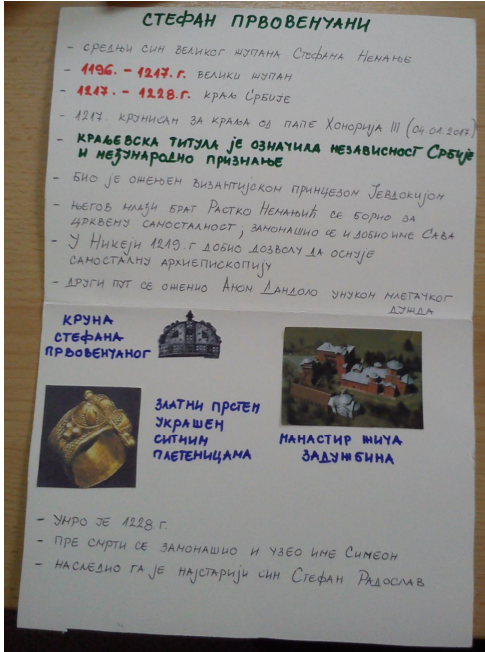 СТЕФАН ПРВОВЕНЧАНИ
- СРЕДЊИ СИН ВЕЛИКОГ ЖУПАНА СТЕФАНА НЕМАЊЕ
- 1196. - 1217. г. ВЕЛИКИ ЖУПАН
- 1217. - 1228. г. КРАЉ СРБИЈЕ
- 1217. КРУНИСАН ЗА КРАЉА ОД ПАПЕ ХОНОРИЈА III (04.01.2017.)
- КРАЉЕВСКА ТИТУЛА ЈЕ ОЗНАЧИЛА НЕЗАВИСНОСТ СРБИЈЕ
И МЕЂУНАРОДНО ПРИЗНАЊЕ
- БИО ЈЕ ОЖЕЊЕН ВИЗАНТИЈСКОМ ПРИНЦЕЗОМ ЈЕВДОКИЈОМ
- ЊЕГОВ МЛАЂИ БРАТ РАСТКО НЕМАЊИЋ СЕ БОРИО ЗА
ЦРКВЕНУ САМОСТАЛНОСТ; ЗАМОНАШИО СЕ И ДОБИО ИМЕ САВА
- У НИКЕЈИ 1219. г ДОБИО ДОЗВОЛУ ДА ОСНУЈЕ
САМОСТАЛНУ АРХИЕПИСКОПИЈУ
- ДРУГИ ПУТ СЕ ОЖЕНИО АНОМ ДАНДОЛО УНУКОМ МЛЕТАЧКОГ
ДУЖДА
КРУНА
СТЕФАНА
ПРВОВЕНЧАНОГ
ЗЛАТНИ ПРСТЕН
УКРАШЕН
СИТНИМ
ПЛЕТЕНИЦАМА
МАНАСТИР ЖИЧА
ЗАДУЖБИНА
- УМРО ЈЕ 1228 г.
- ПРЕ СМРТИ СЕ ЗАМОНАШИО И УЗЕО ИМЕ СИМЕОН
- НАСЛЕДИО ГА ЈЕ НАЈСТАРИЈИ СИН СТЕФАН РАДОСЛАВ